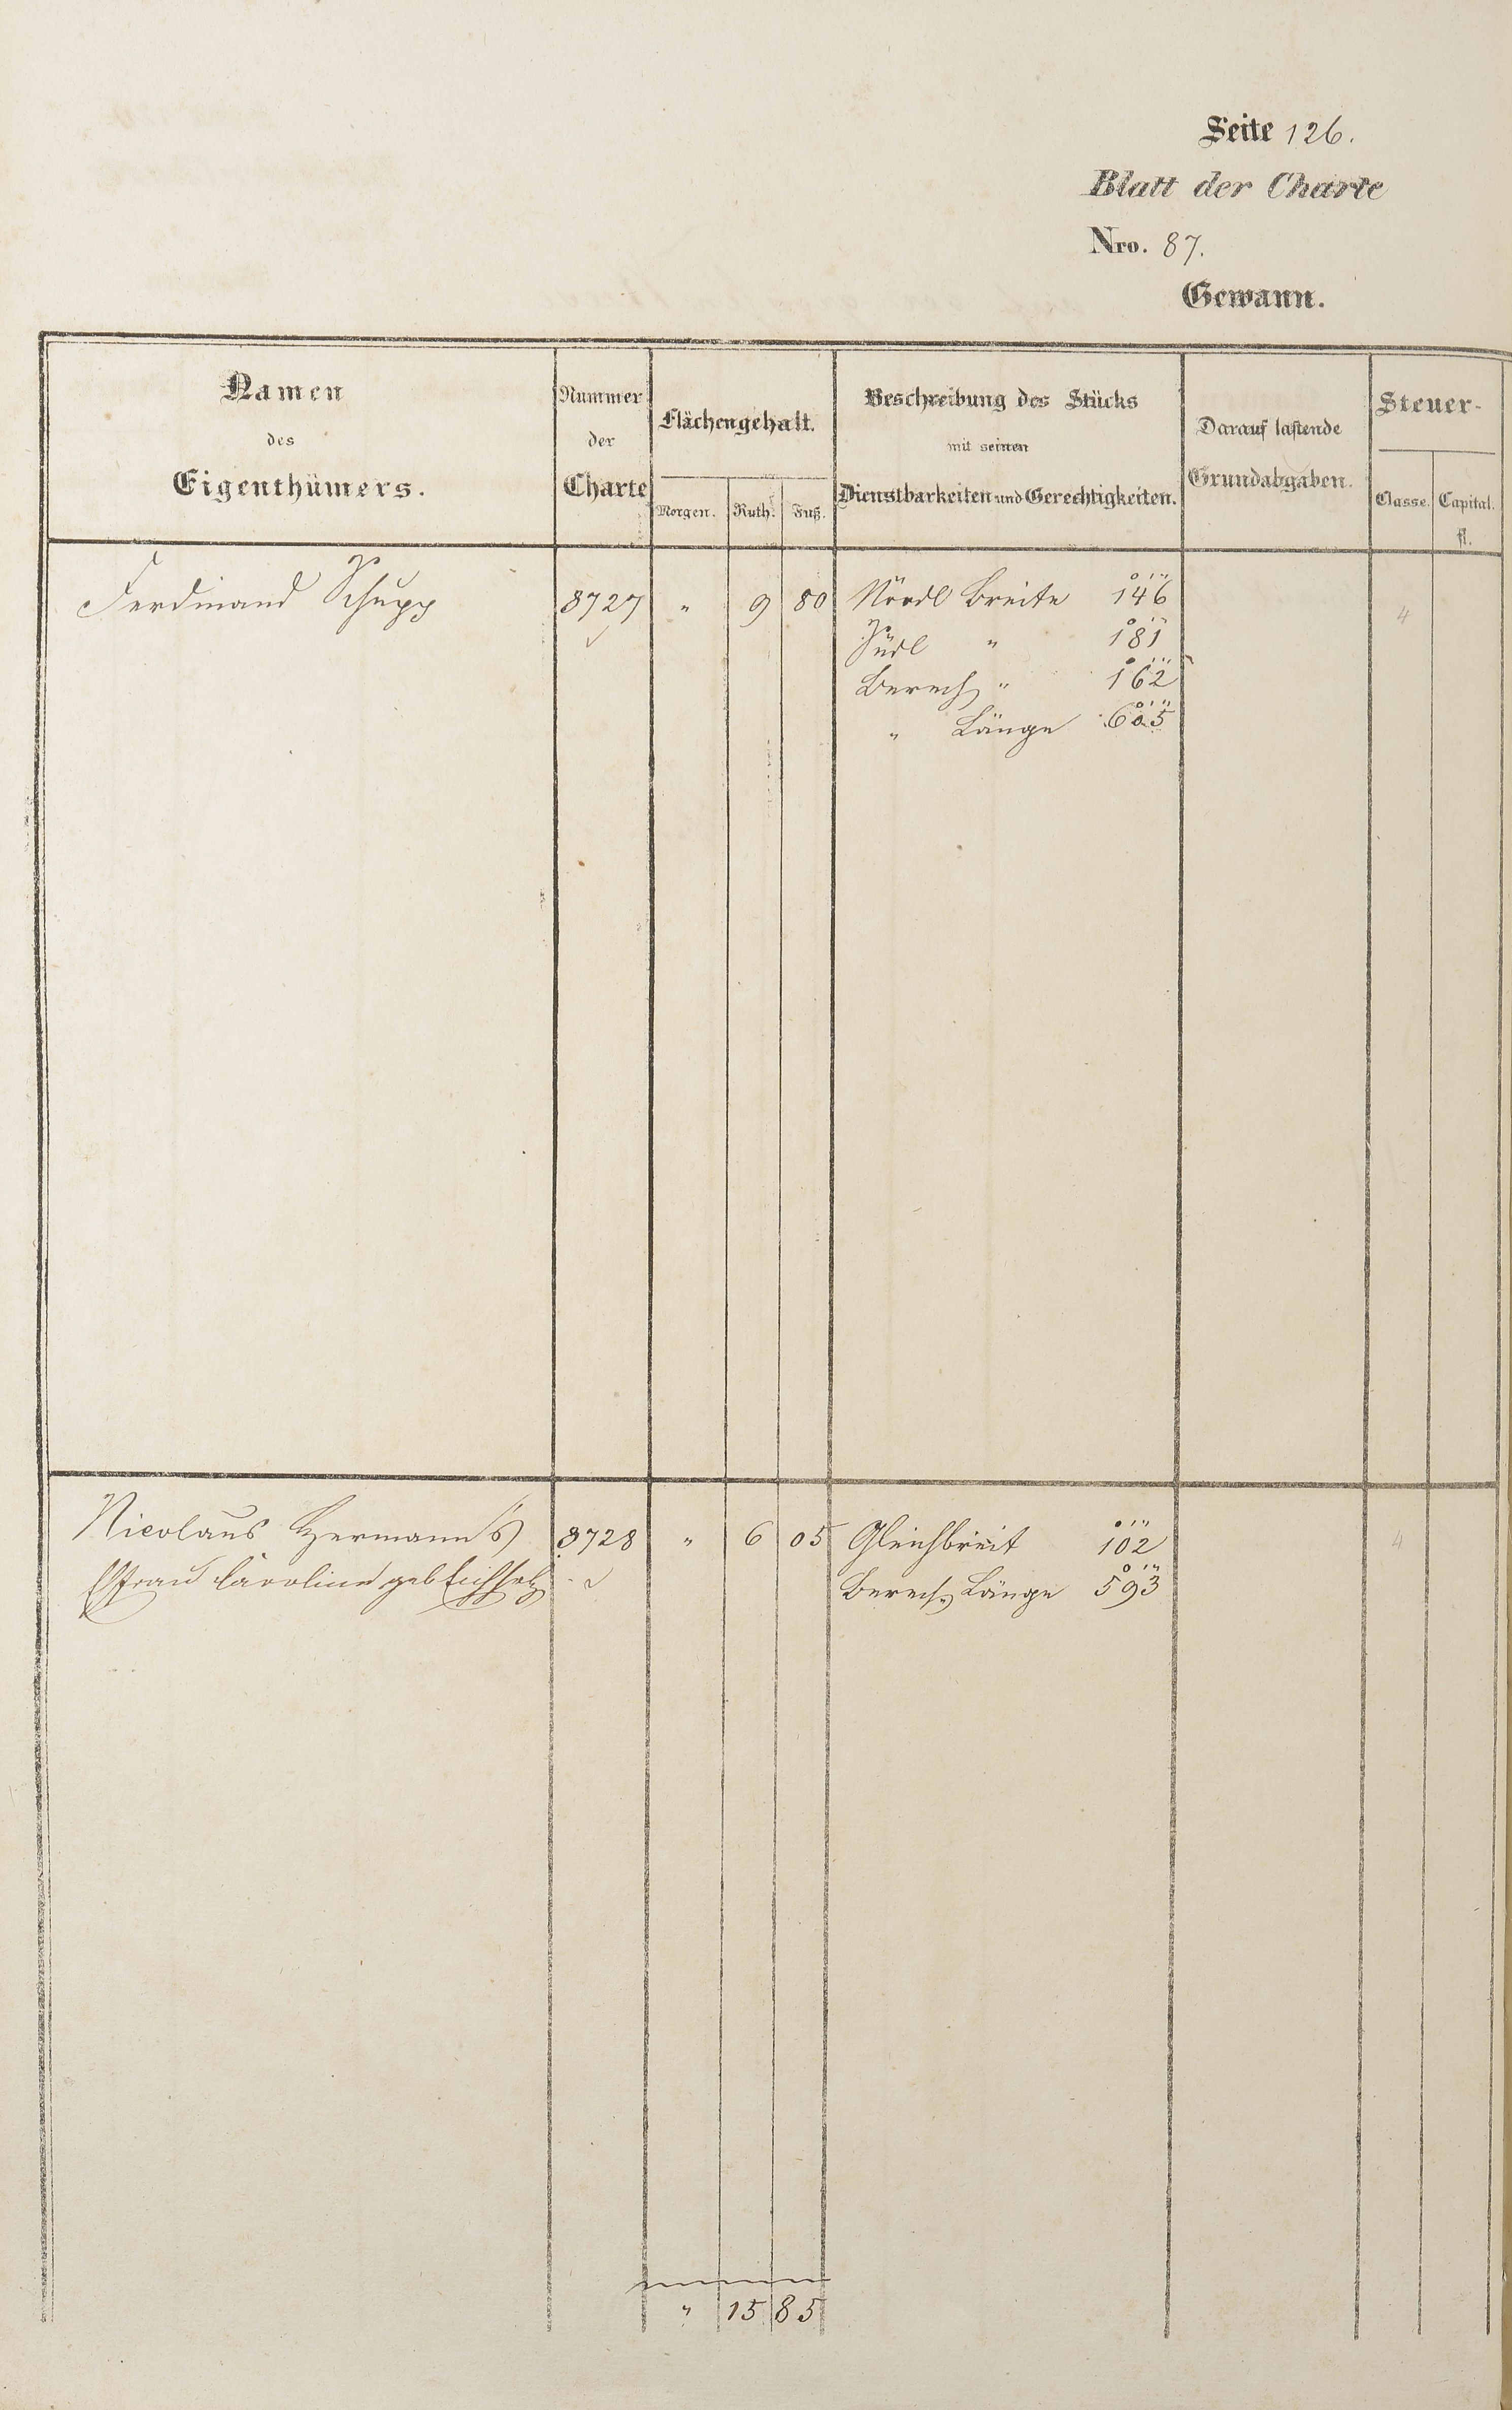 Seite 126.
Blatt der Charte
Nro. 87.
Gewann.
Namen des Eigenthümers.
Nummer der Charte
Flächengehalt.
Morgen. Ruth. Fuß.
Beschreibung des Stücks mit seinen Dienstbarkeiten und Gerechtigkeiten.
Darauf lastende Grundabgaben.
Steuer-
Classe. Capital. fl.
Ferdinand Schupp 8727 " 9 80 Nördl Breite 1°4'6" 4
Südl " 1°8'1"
Berech " 1°6'2"
" Länge 6°0'5"
Nicolaus Hermann's 8728 " 6 05 Gleichbreit 1°0'2" 4
Efrau Caroline geb Eichholz Berech Länge 5°9'3"
" 15 85